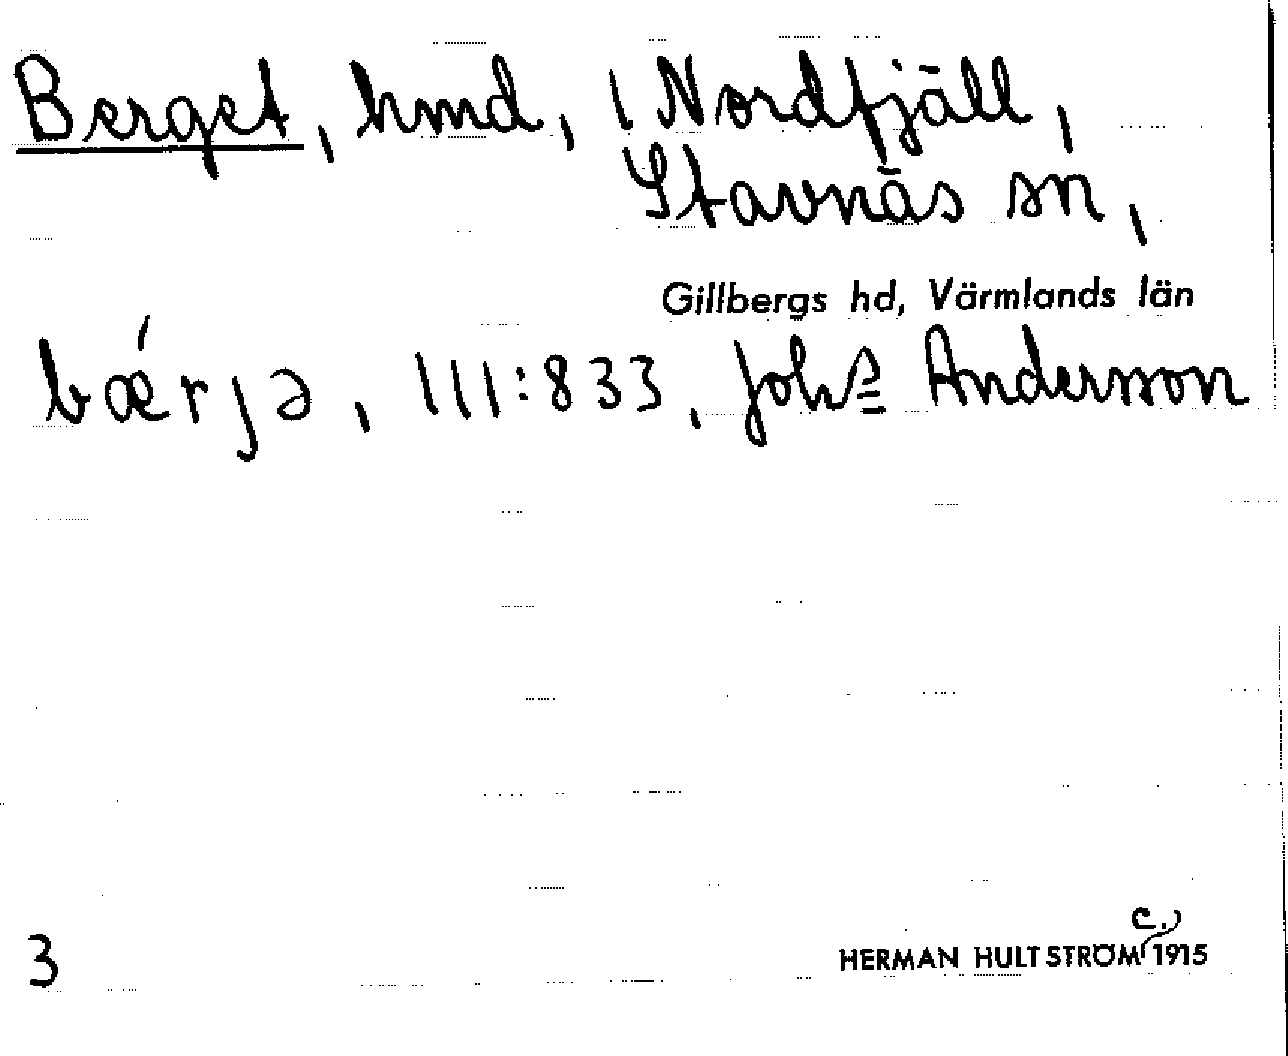 Berget, hmd, i Nordfjäll,
Stavnäs sn,
Gillbergs hd, Värmlands län
bǽrjə, III:833, Johs Andersson
c.
3 HERMAN HULTSTRÖM 1915